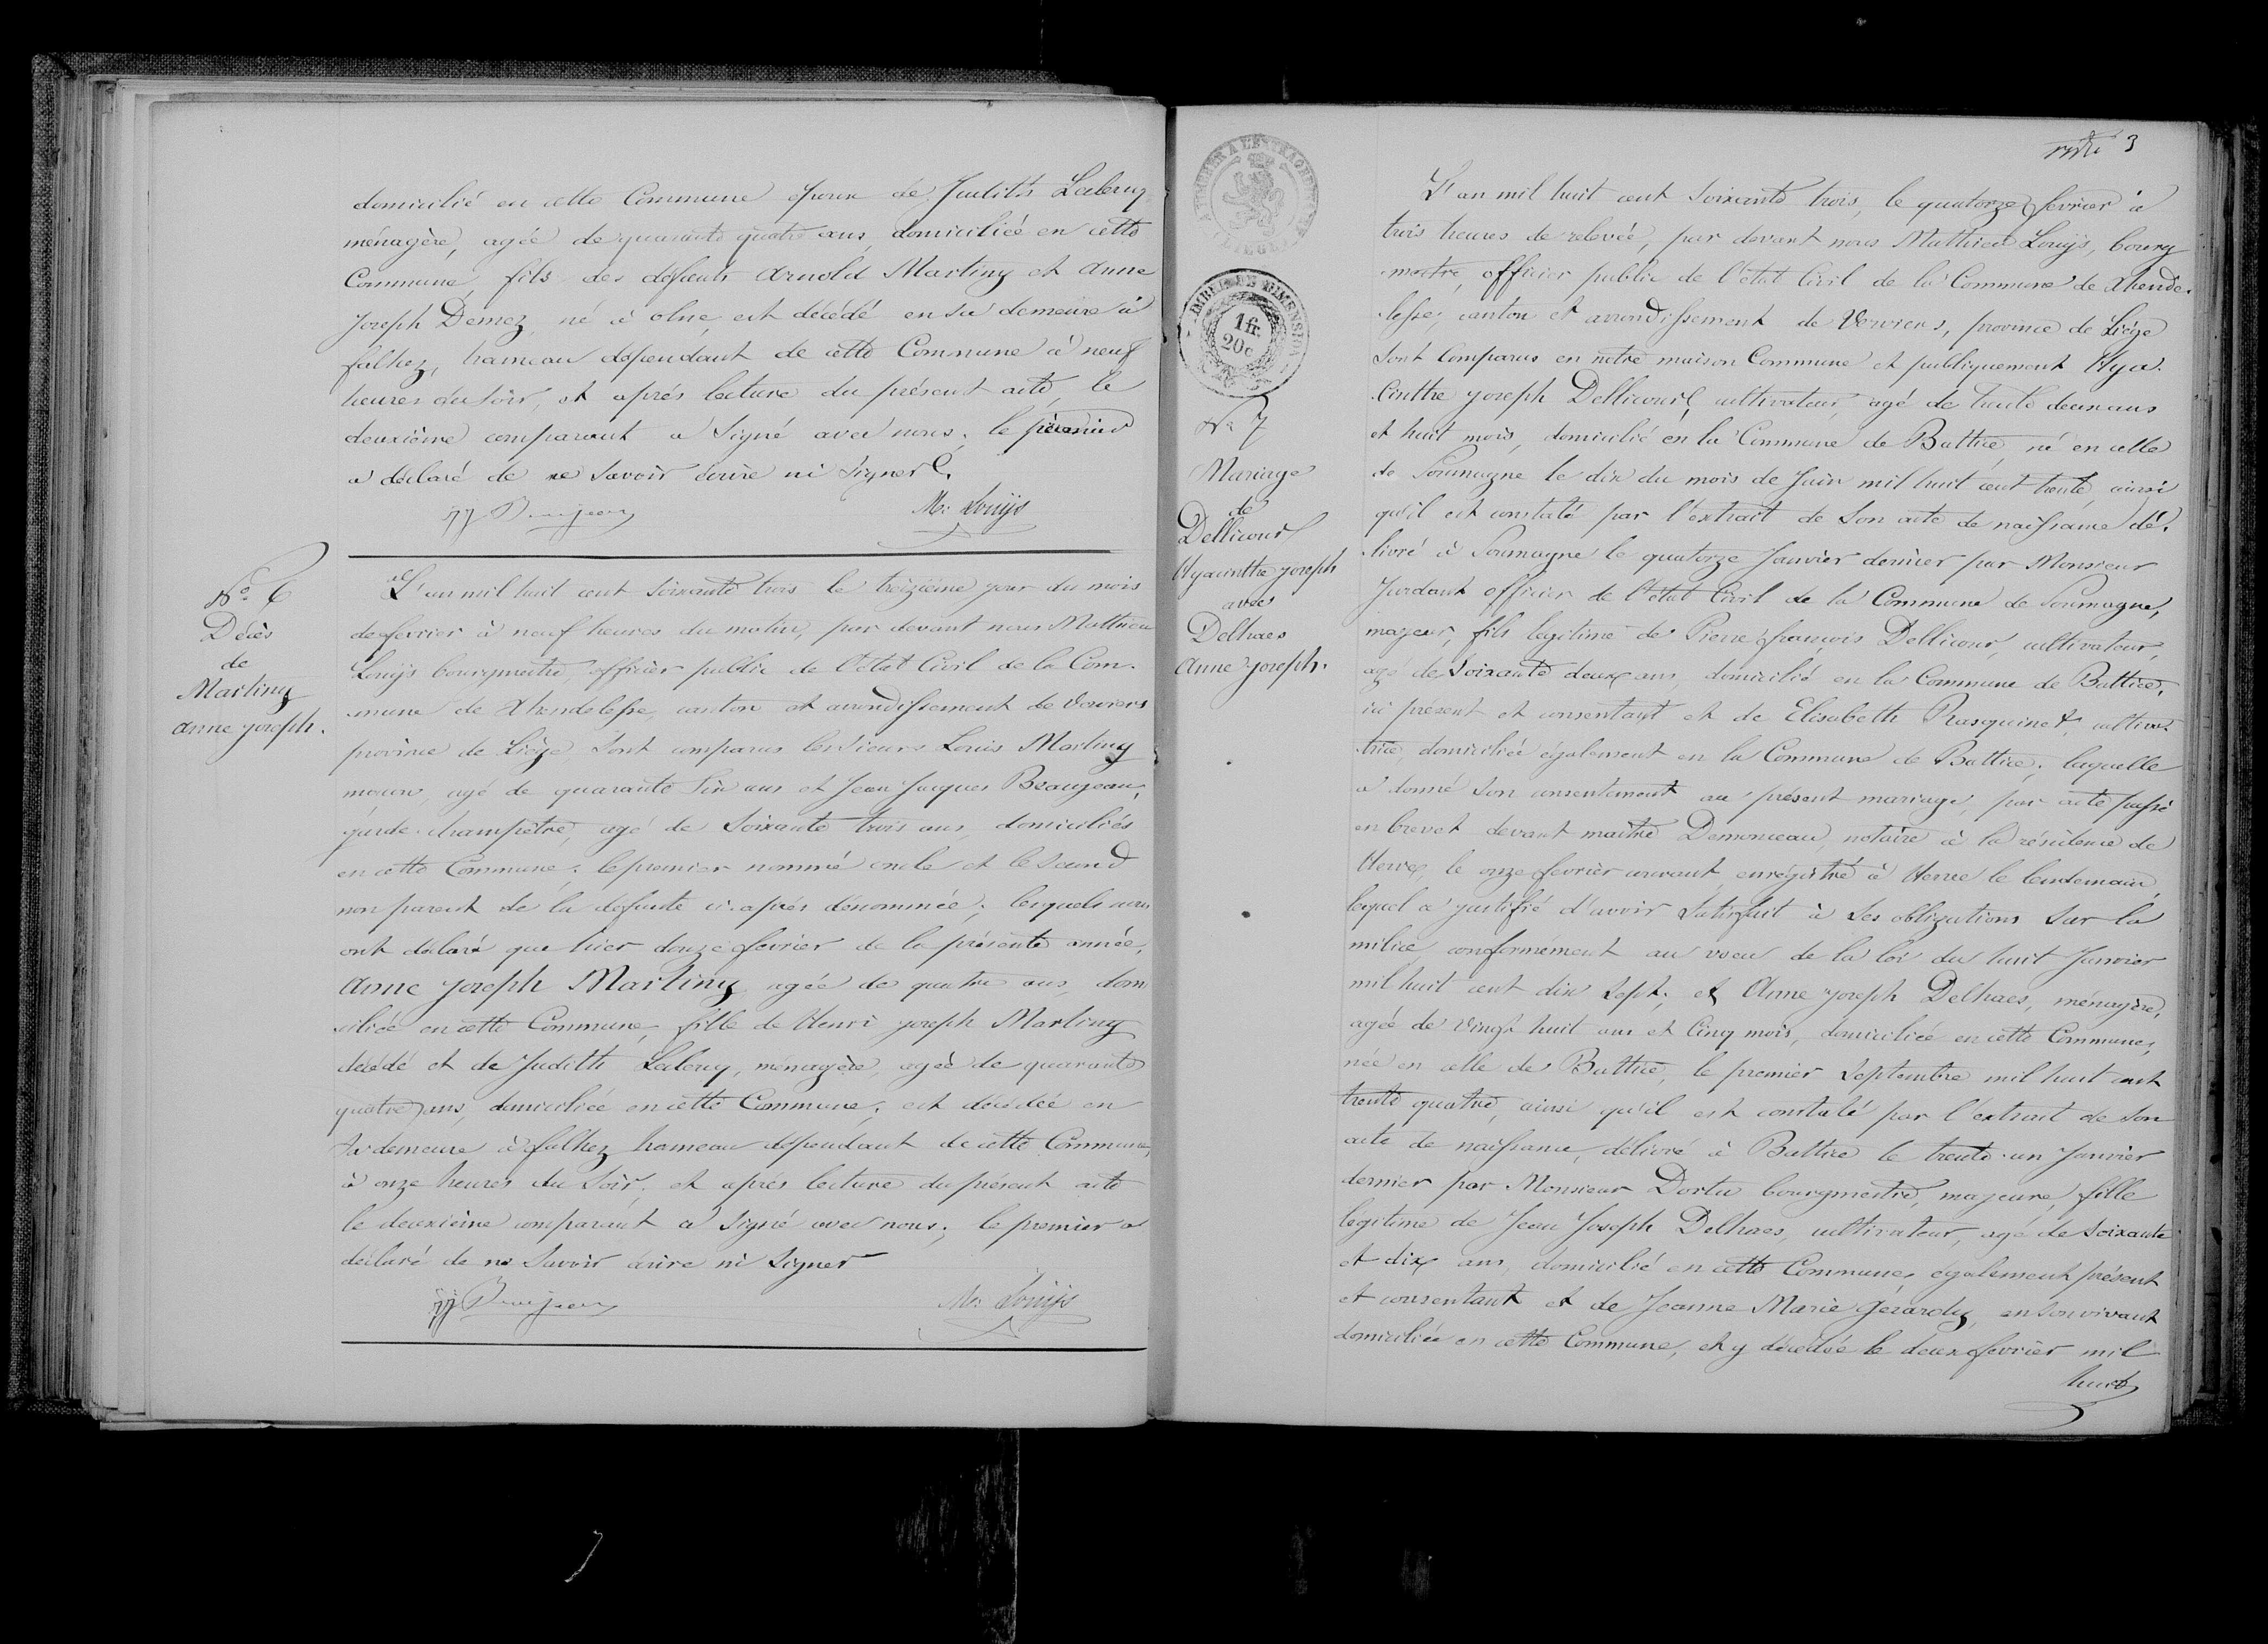 domicilié en cette Commune epoux de Judith Laleruy
ménagère, agée de quarante quatre ans, domiciliée en cette
Commune, fils des défunts Arnold Martiny et Anne
Joseph Demez, né à olne, est décédé en sa demeure à
falhez, hameau dépendant de cette Commune à neuf
heures du soir, et après lecture du présent acte, le
deuxième comparant a signé avec nous; le premier
a déclaré de ne savoir écrire ni signer.
JJ Beaujean M: Louijs
No. 6
Décès
de
Martiny
anne joseph.
L'an mil huit cent soixante trois le treizième jour du mois
de fevrier à neuf heures du matin, par devant nous Mathieu
Louijs bourgmestre, officier public de l'état Civil de la Com-
mune de Xhendelesse, canton et arrondissement de Verviers
province de Liége sont comparus les sieurs Louis Martiny
maçon, agé de quarante six ans et Jean Jacques Beaujean,
garde-champêtre, agé de soixante trois ans, domiciliés
en cette Commune; le premier nommé oncle et le second
non parent de la défunte ci-après dénommée; lesquels nous
ont déclaré que hier douze fevrier de la présente année,
Anne Joseph Martiny agée de quatre ans, domi
ciliée en cette Commune, fille de Henri joseph Martiny
décédé et de Judith Laleruy, ménagère, agée de quarante
quatre ans, domiciliée en cette Commune; est décédée en
sa demeure à falhez hameau dépendant de cette Commune,
à onze heures du soir; et après lecture du présent acte
le deuxième comparant a signé avec nous; le premier a
déclaré de ne savoir écrire ni signer
JJ Beaujean M: Louijs
3
A TIMBRER A L'EXTRAORDINAIRE
LIEGE
TIMBRE DE DIMENSION
1 fr.
20 c
No 7
Mariage
de
Dellicour
Hyacinthe joseph
avec
Delhaes
Anne joseph.
L'an mil huit cent soixante trois, le quatorze fevrier à
trois heures de relevée, par devant nous Mathieu Louijs, bourg
-mestre, officier public de l'état Civil de la Commune de Xhende-
-lesse, canton et arrondissement de Verviers, province de Liége
sont comparus en notre maison Commune et publiquement Hya-
-cinthe joseph Dellicour, cultivateur, agé de trente deux ans
et huit mois, domicilié en la Commune de Battice, né en celle
de Soumagne le dix du mois de Juin mil huit cent trente, ainsi
qu'il est constaté par l'extrait de son acte de naissance dé-
-livré à Soumagne le quatorze Janvier dernier par Monsieur
Jurdant officier de l'état Civil de la Commune de Soumagne,
majeur, fils legitime de Pierre françois Dellicour, cultivateur,
agé de soixante deux ans, domicilié en la Commune de Battice,
ici présent et consentant et de Elisabeth Rasquinet, cultiva-
-trice, domiciliée également en la Commune de Battice; laquelle
a donné son consentement au présent mariage, par acte passé
en brevet devant maître Demonceau, notaire à la résidence de
Herve, le onze fevrier courant, enrégistré à Herve le lendemain,
lequel a justifié d'avoir satisfait à ses obligations sur la
milice, conformément au voeu de la loi du huit Janvier
mil huit cent dix sept; et Anne joseph Delhaes, ménagère,
agée de vingt huit ans et Cinq mois, domiciliée en cette Commune,
née en celle de Battice, le premier Septembre mil huit cent
trente quatre, ainsi qu'il est constaté par l'extrait de son
acte de naissance, délivré à Battice le trente-un Janvier
dernier par Monsieur Dortu bourgmestre, majeure, fille
legitime de Jean Joseph Delhaes, cultivateur, agé de soixante
et dix ans, domicilié en cette Commune, également présent
et consentant et de Jeanne Marie Gérardy, en son vivant
domiciliée en cette Commune, et y décédée le deux fevrier mil
huit